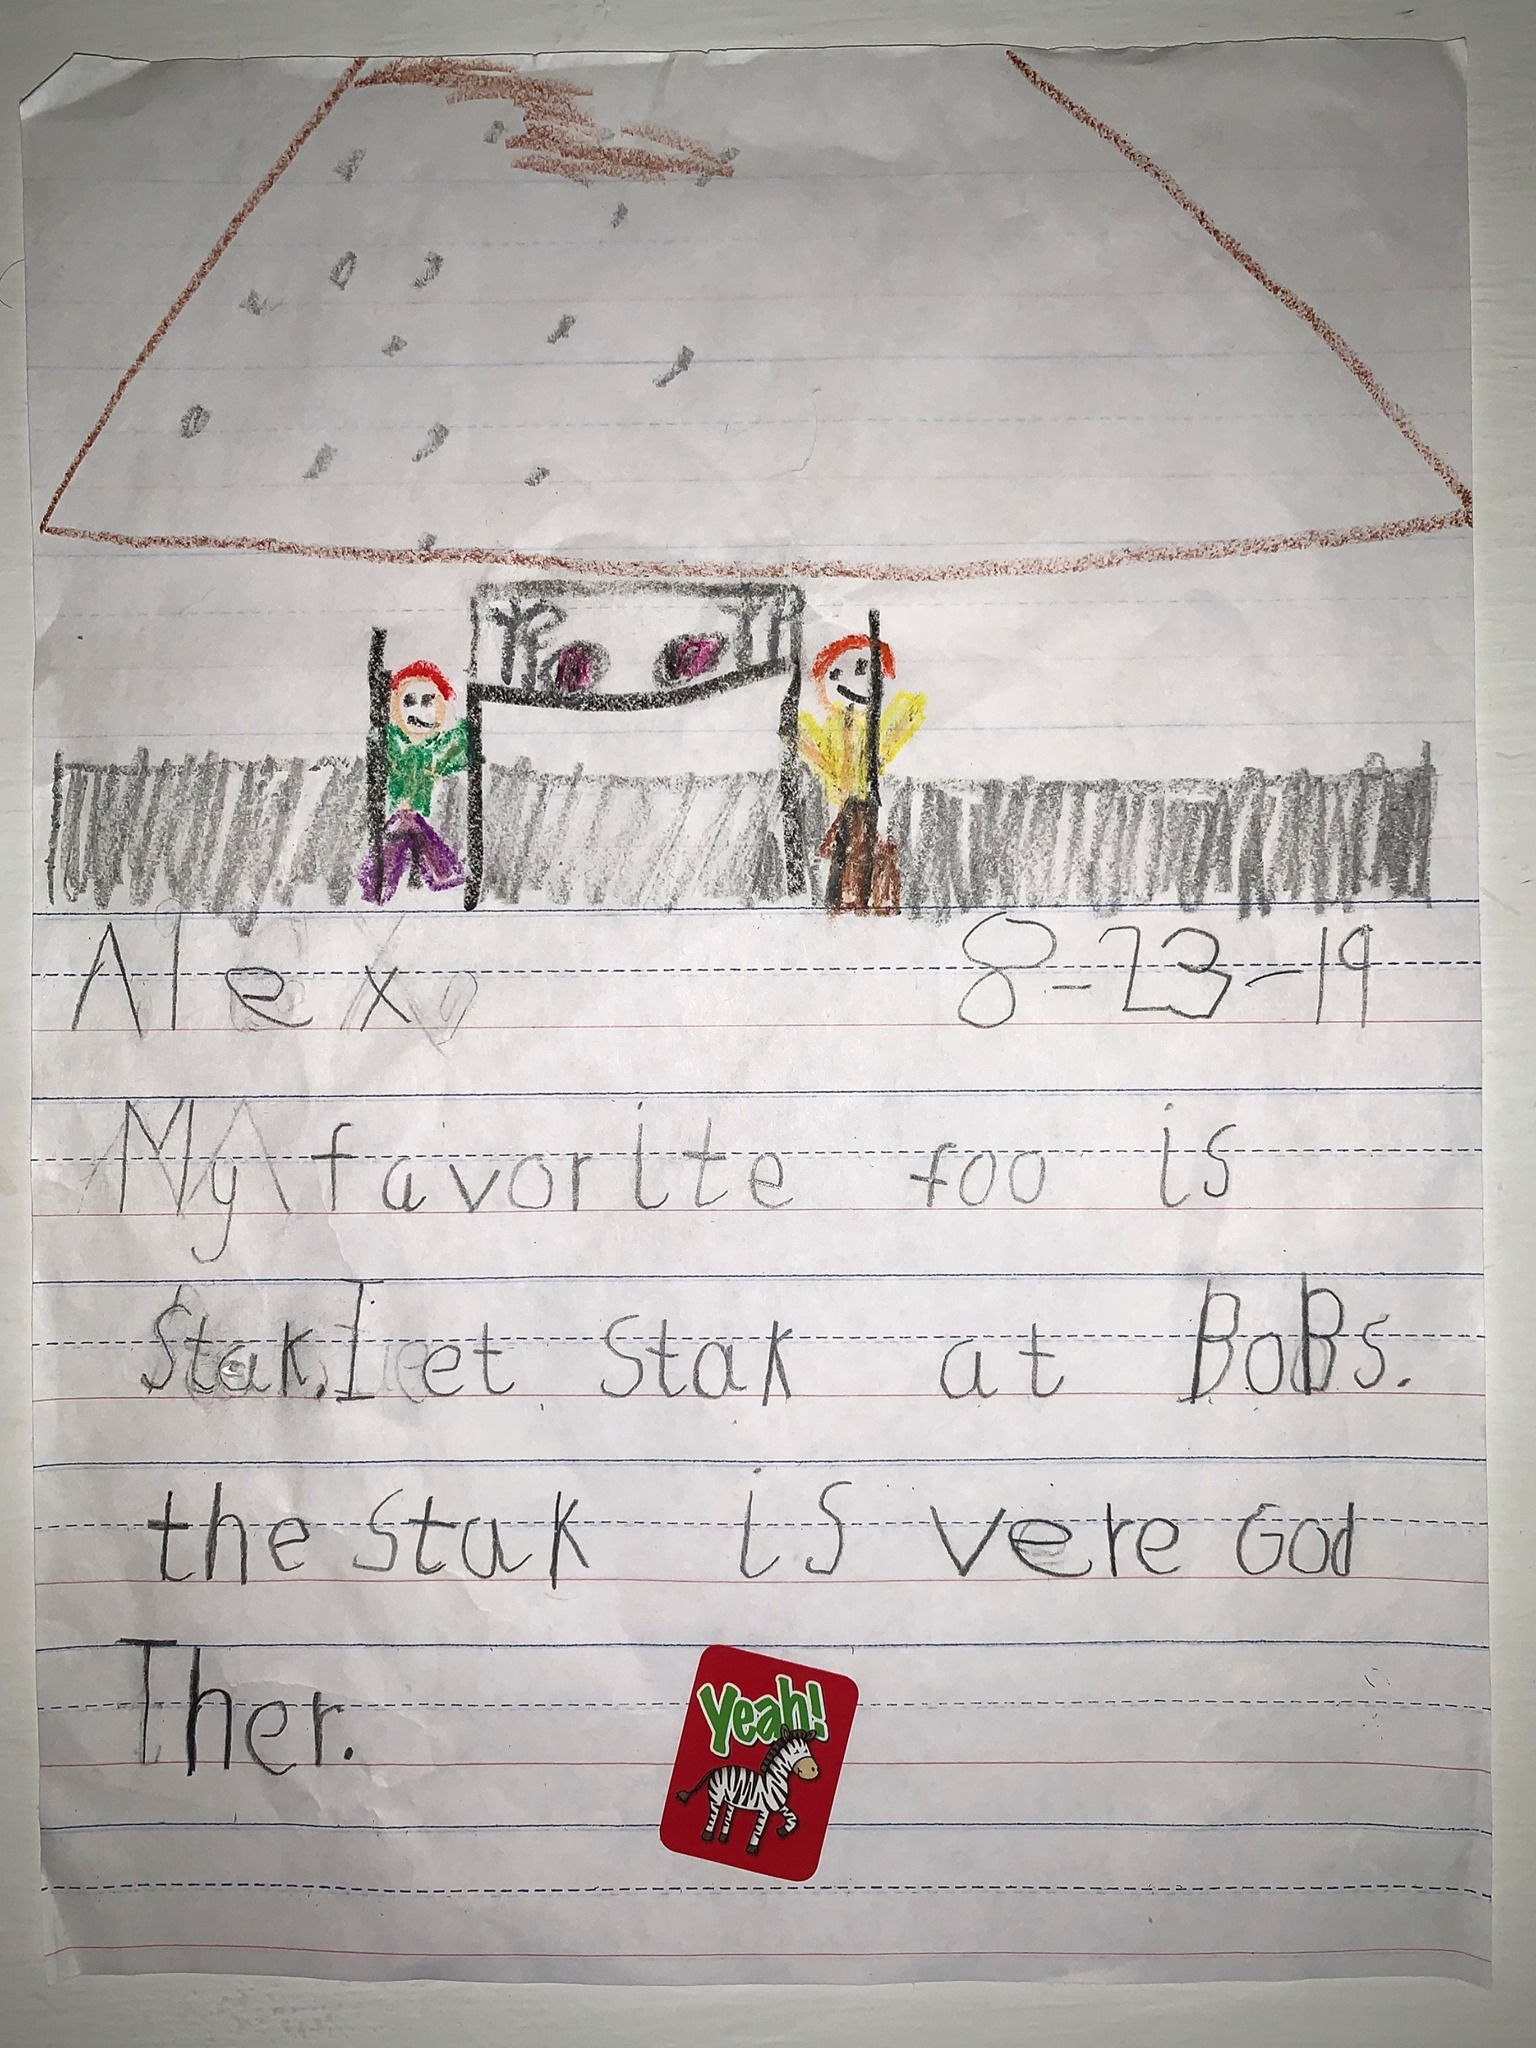 Alex 8-23-19
My favorite foo is
Stak. I et Stak at BoBs.
the Stak is vere God
Ther.
Yeah!